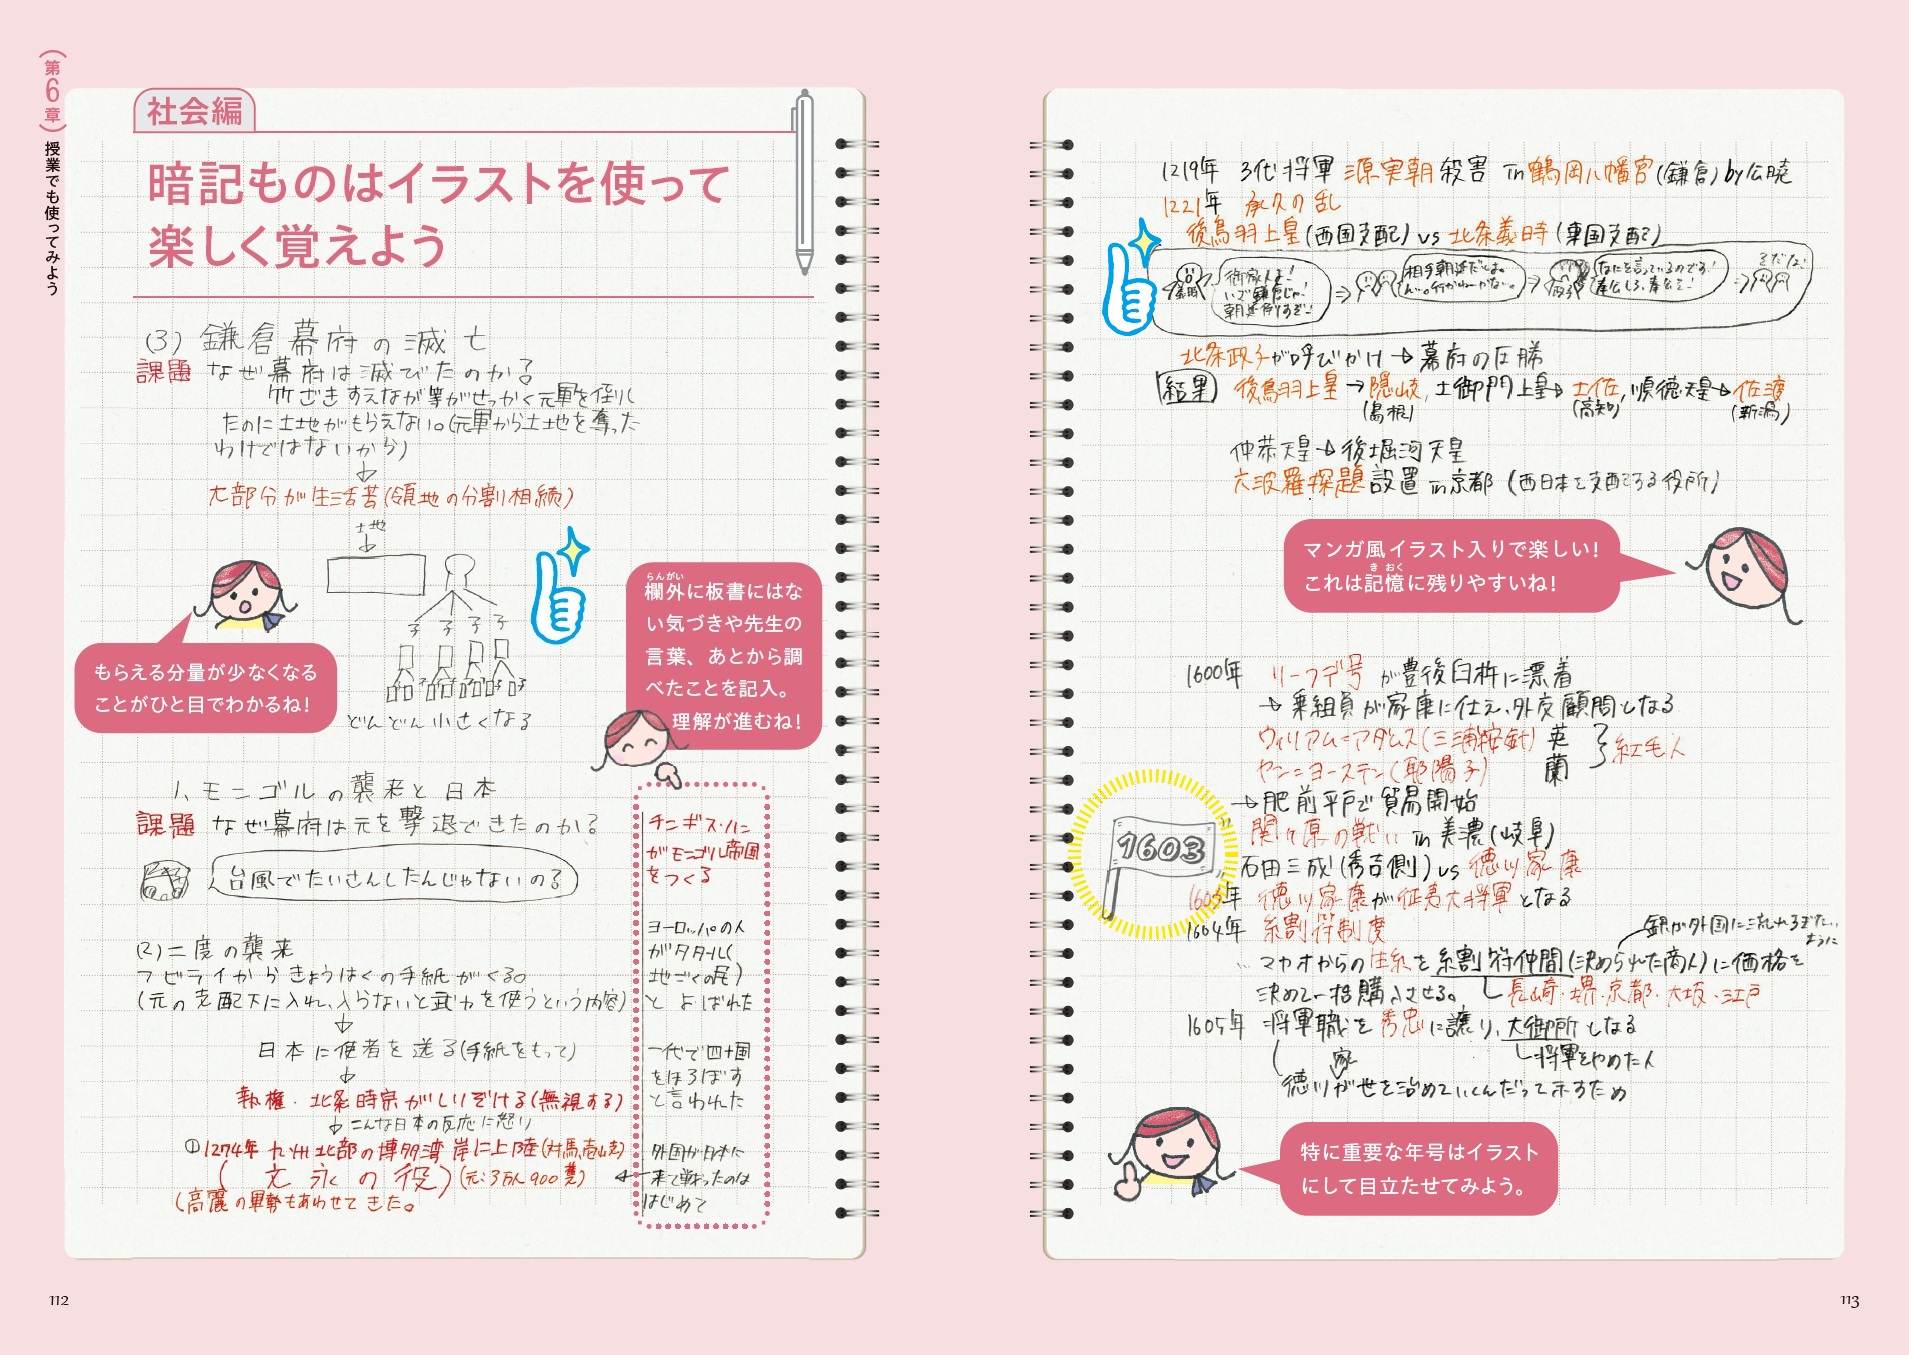 （第6章）授業でも使ってみよう
社会編
暗記ものはイラストを使って
楽しく覚えよう
(3) 鎌倉幕府の滅亡
課題 なぜ幕府は滅びたのか?
竹ざきすえなが等がせっかく元軍を倒し
たのに土地がもらえない。(元軍から土地を奪った
わけではないから)
↓
大部分が生活苦(領地の分割相続)
土地
↓
子 子 子 子
どんどん小さくなる
もらえる分量が少なくなる
ことがひと目でわかるね!
欄外に板書にはな
らんがい
い気づきや先生の
言葉、あとから調
べたことを記入。
理解が進むね!
1、モンゴルの襲来と日本
課題 なぜ幕府は元を撃退できたのか?
台風でたいさんしたんじゃないの?
(2)二度の襲来
フビライからきょうはくの手紙がくる。
(元の支配下に入れ、入らないと武力を使うという内容)
↓
日本に使者を送る(手紙をもって)
↓
執権・北条時宗がしりぞける(無視する)
↓こんな日本の反応に怒り
①1274年 九州北部の博多湾岸に上陸(対馬、壱岐)
(文永の役)(元:3万人900隻)
(高麗の軍勢もあわせてきた。
チンギス・ハン
がモンゴル帝国
をつくる
ヨーロッパの人
がタタール(
地ごくの民)
とよばれた
一代で四十国
をほろぼす
と言われた
外国が日本に
←来て戦ったのは
はじめて
112
1219年 3代将軍 源実朝 殺害 in 鶴岡八幡宮(鎌倉) by 公暁
1221年 承久の乱
後鳥羽上皇(西国支配) vs 北条義時(東国支配)
義時
御家人よ!
いざ鎌倉じゃ!
相手朝廷だしよ。
政子
なにを言っているのです!
奉公しろ、奉公を!
そだな。
北条政子が呼びかけ→幕府の圧勝
結果 後鳥羽上皇→隠岐, 土御門上皇→土佐, 順徳天皇→佐渡
(島根) (高知) (新潟)
仲恭天皇→後堀河天皇
六波羅探題 設置 in 京都 (西日本を支配する役所)
マンガ風イラスト入りで楽しい!
これは記憶に残りやすいね!
きおく
1600年 リーフデ号 が豊後臼杵に漂着
→乗組員が家康に仕え、外交顧問となる
ウィリアム=アダムス(三浦按針) 英
ヤン=ヨーステン(耶陽子) 蘭
紅毛人
→肥前平戸で貿易開始
〃 関ヶ原の戦い in 美濃(岐阜)
1603
〃 石田三成(秀吉側) vs 徳川家康
1603年 徳川家康が征夷大将軍となる
1604年 糸割符制度
銀が外国に流れるぎない
ように
マカオからの生糸を糸割符仲間(決められた商人)に価格を
決めて一括購入させる。
長崎・堺・京都・大坂・江戸
1605年 将軍職を秀忠に譲り、大御所となる
将軍をやめた人
家
徳川が世を治めていくんだって示すため
特に重要な年号はイラスト
にして目立たせてみよう。
113